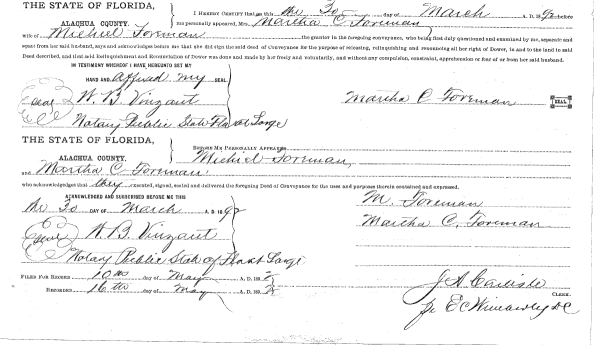 THE STATE OF FLORIDA, I HEREBY CERTIFY that on this the 30 day of March A. D. 1892 before
ALACHUA COUNTY. me personally appeared, Mrs. Martha C Foreman
wife of Michiel Foreman the grantor in the foregoing conveyance, who being first duly questioned and examined by me, separate and
apart from her said husband, says and acknowledges before me that she did sign the said deed of Conveyance for the purpose of releasing, relinquishing and renouncing all her right of Dower, in and to the land in said
Deed described, and that said Relinquishment and Renunciation of Dower was done and made by her freely and voluntarily, and without any compulsion, constraint, apprehension or fear of or from her said husband.
IN TESTIMONY WHEREOF I HAVE HEREUNTO SET MY
HAND AND affixed my SEAL
Seal W. B. Vinzant Martha C Foreman SEAL
Notary Public State Fla at Large
THE STATE OF FLORIDA,
ALACHUA COUNTY. BEFORE ME PERSONALLY APPEARED Michiel Foreman,
and Martha C Foreman
who acknowledged that they executed, signed, sealed and delivered the foregoing Deed of Conveyance for the uses and purposes therein contained and expressed.
ACKNOWLEDGED AND SUBSCRIBED BEFORE ME THIS M. Foreman
the 30 DAY OF March A. D. 1892 Martha C. Foreman
Seal W. B. Vinzant
Notary Public State of Fla at Large
FILED FOR RECORD 10th day of May A. D. 1892 J A Carlisle
RECORDED 16th day of May A. D. 1892 CLERK.
pr E C DC